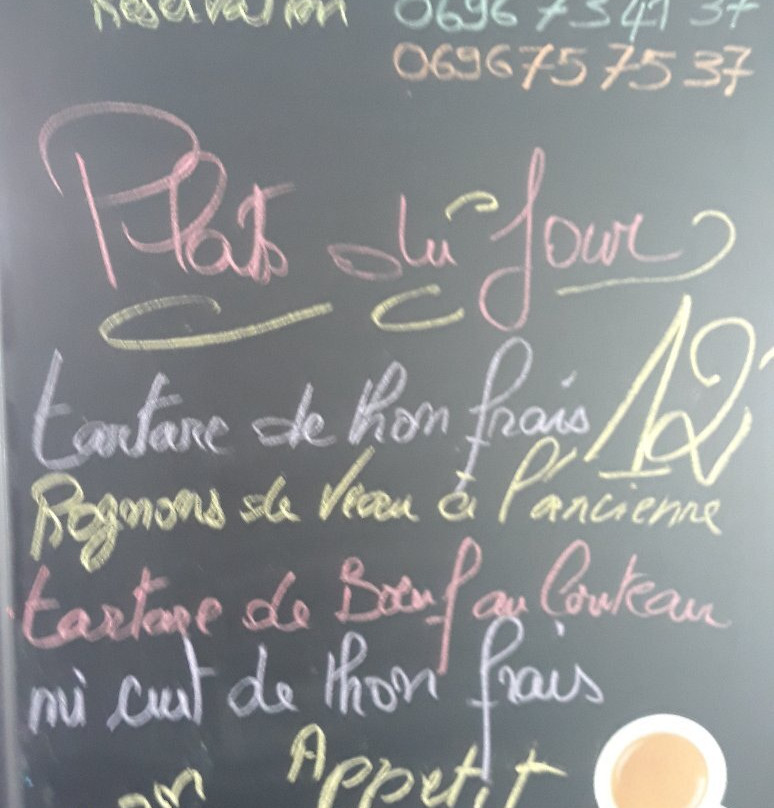 Réservation 0696 73 41 37
0696 75 75 37
Plats du Jour
tartare de thon frais 12
Rognons de Veau à l'ancienne
tartare de Boeuf au Couteau
mi cuit de thon frais
Appetit